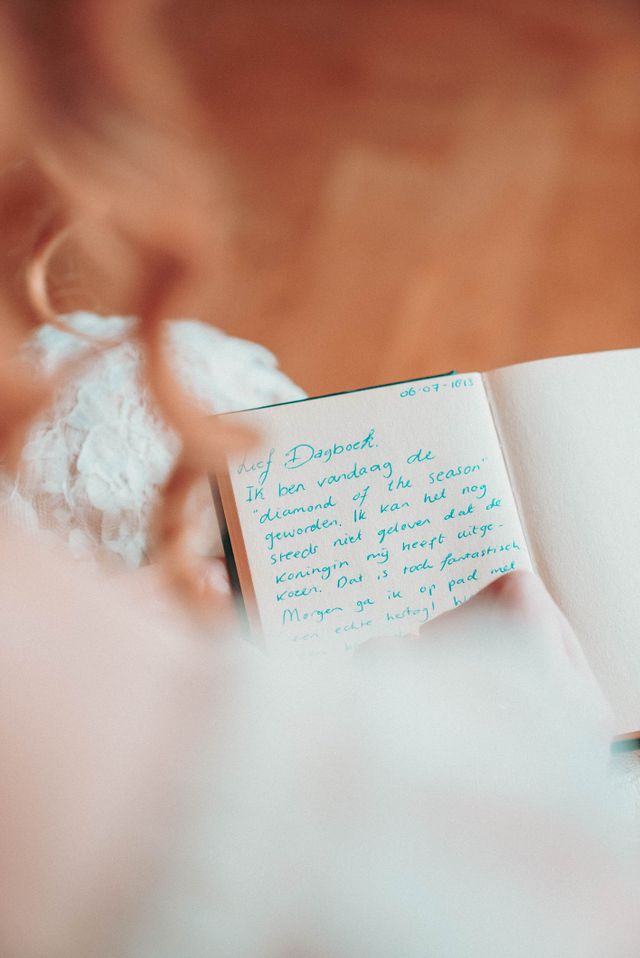 06-07-1813
Lief Dagboek.
Ik ben vandaag de
"diamond of the season"
geworden. Ik kan het nog
steeds niet geloven dat de
koningin mij heeft uitge-
kozen. Dat is toch fantastisch
Morgen ga ik op pad met
een echte hertog!